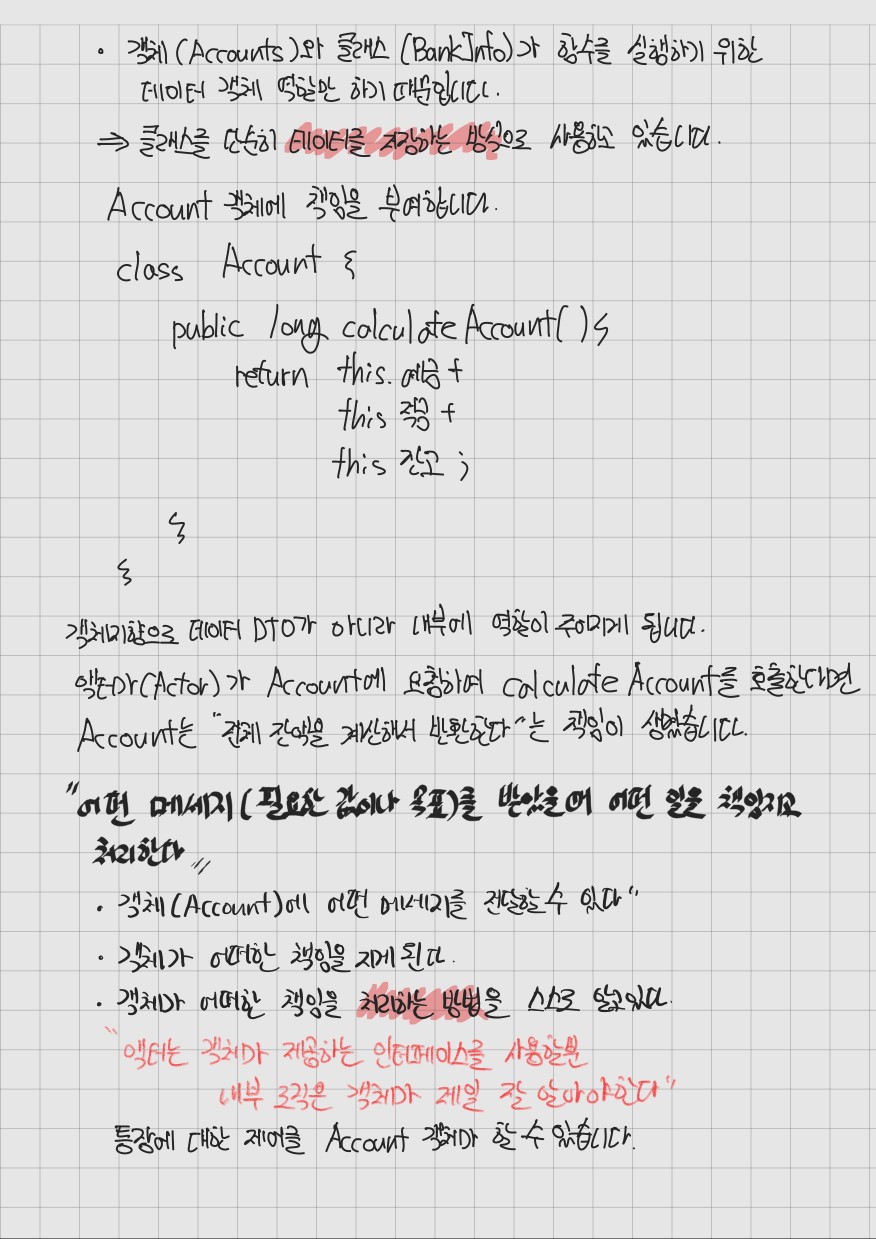 · 객체(Accounts)와 클래스(BankInfo)가 함수를 실행하기 위한
데이터 객체 역할만 하기 때문입니다.
⇒ 클래스를 단순히 데이터를 저장하는 방식으로 사용하고 있습니다.
Account 객체에 책임을 부여합니다.
class Account {
public long calculateAccount(){
return this.예금 +
this 적금 +
this 잔고 ;
}
}
객체지향으로 데이터 DTO가 아니라 내부에 역할이 주어지게 됩니다.
액터가(Actor)가 Account에 요청하여 calculate Account를 호출한다면
Account는 "전체 잔액을 계산해서 반환한다"는 책임이 생겼습니다.
"어떤 메세지(필요한 값이나 목표)를 받았을 때 어떤 일을 책임지고
처리한다"
· 객체(Account)에 어떤 메세지를 전달할 수 있다"
· 객체가 어떠한 책임을 지게 된다.
· 객체가 어떠한 책임을 처리하는 방법을 스스로 알고있다.
"액터는 객체가 제공하는 인터페이스를 사용할뿐
내부 로직은 객체가 제일 잘 알아야한다"
통장에 대한 제어를 Account 객체가 할 수 있습니다.